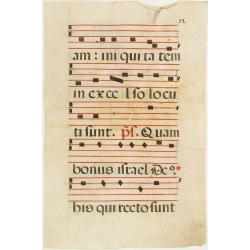 am : ini qui ta tem
in exce l so locu
ti sunt. ps. Quam
bonus israel De?
his qui recto sunt